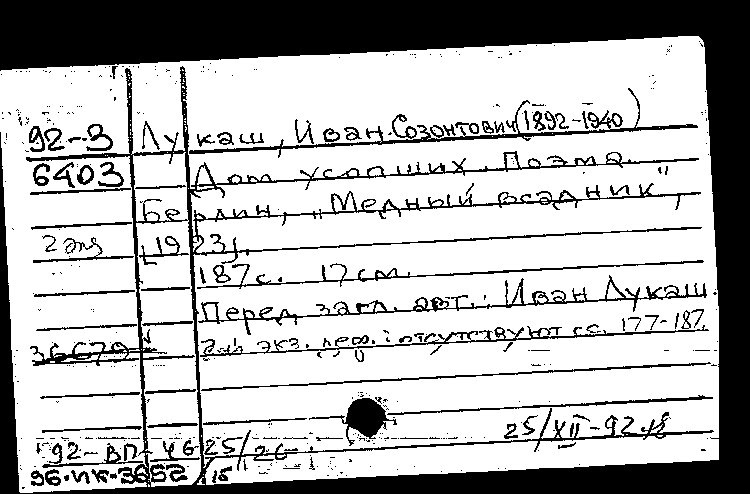 92-3 Лукаш, Иван Созонтович (1892-1940)
6403 Дом усопших. Поэма.
Берлин, "Медный всадник",
2 экз [1923].
187 с. 17 см.
Перед загл. авт.: Иван Лукаш.
36679 экз. деф.: отсутствуют сс. 177-187.
25/XII-92
92-ВП-4625/26
96-ИК-3652/15